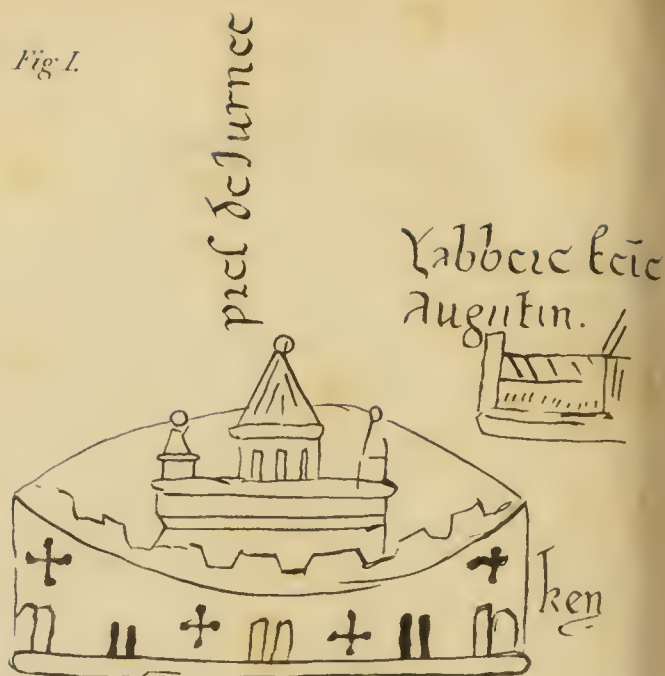 Fig I.
de Jurnee
Labbeie seīt
Augustin.
ken